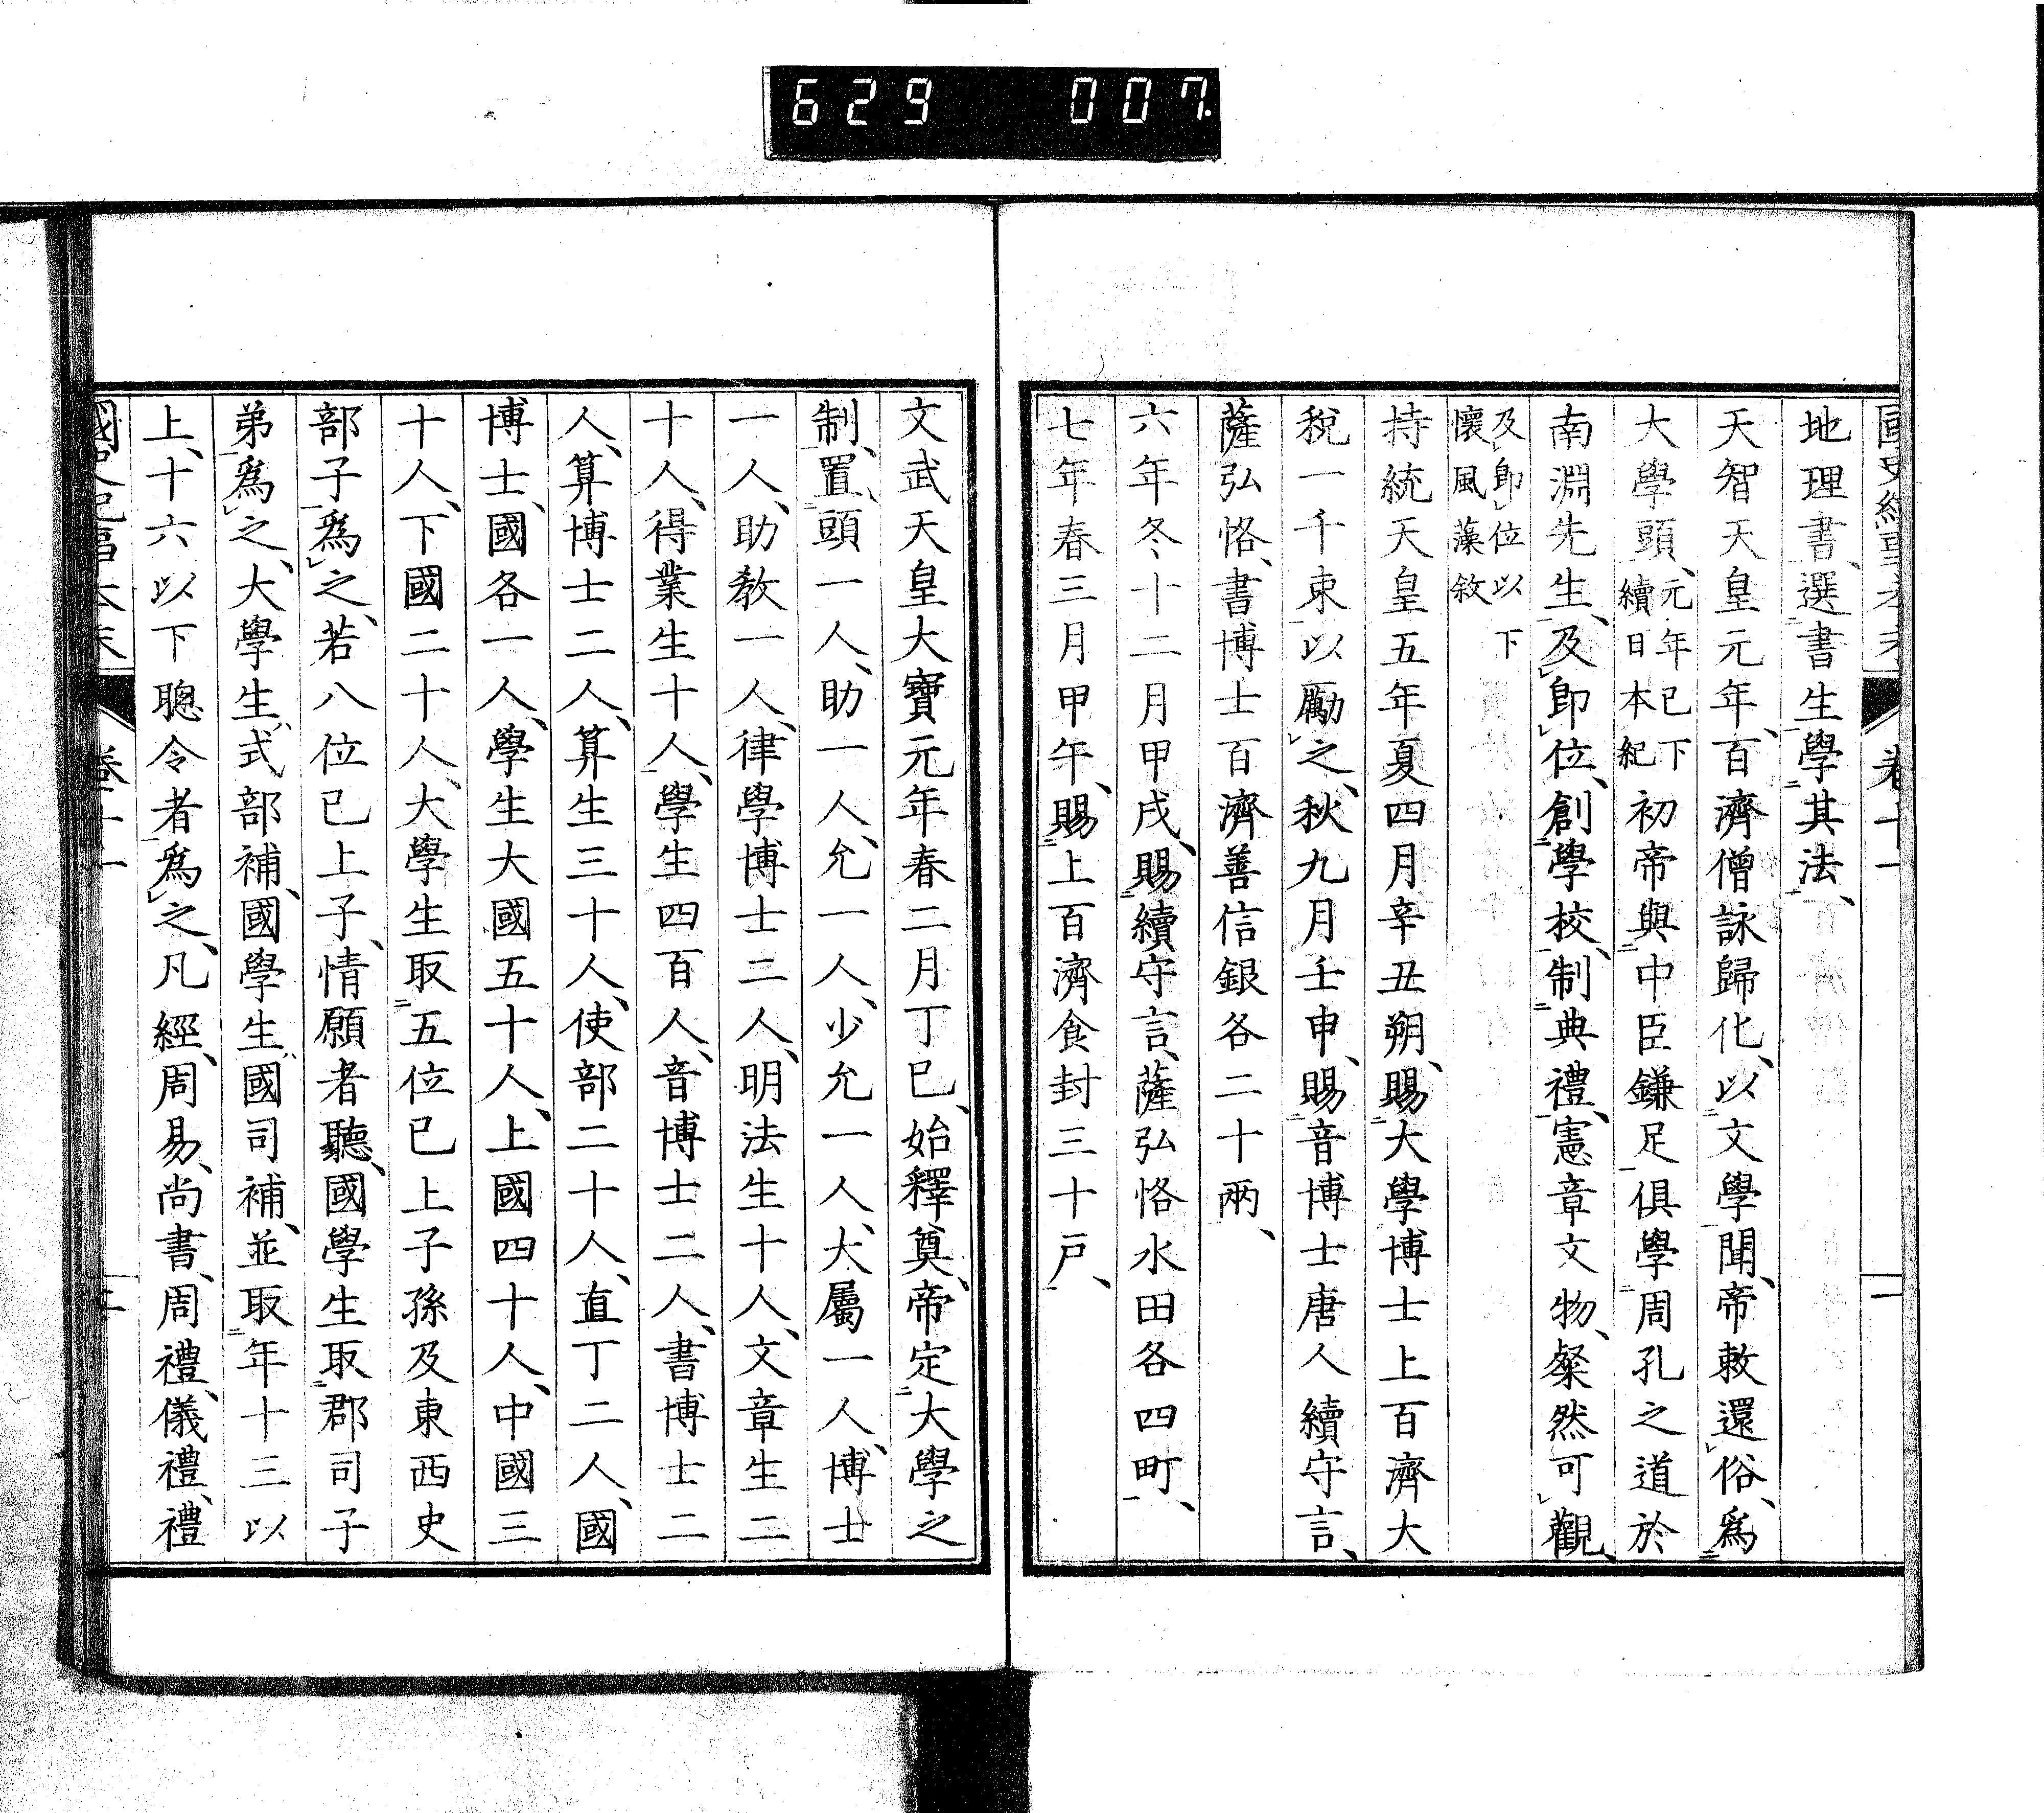 629 007.
地理書、選書生學其法、
天智天皇元年、百濟僧詠歸化、以文學聞、帝敕還俗、爲
大學頭、元年已下續日本紀初帝與中臣鎌足俱學周孔之道於
南淵先生、及卽位、創學校、制典禮、憲章文物、粲然可觀、
及卽位以下懷風藻敘
持統天皇五年夏四月辛丑朔、賜大學博士上百濟大
稅一千束以勵之、秋九月壬申、賜音博士唐人續守言、
薩弘恪、書博士百濟善信銀各二十兩、
六年冬、十二月甲戌、賜續守言、薩弘恪水田各四町、
七年春三月甲午、賜上百濟食封三十戶、
卷十一
二
文武天皇大寶元年春二月丁巳、始釋奠、帝定大學之
制、置頭一人、助一人、允一人、少允一人、大屬一人、博士
一人、助教一人、律學博士二人、明法生十人、文章生二
十人、得業生十人、學生四百人、音博士二人、書博士二
人、算博士二人、算生三十人、使部二十人、直丁二人、國
博士、國各一人、學生大國五十人、上國四十人、中國三
十人、下國二十人、大學生取五位已上子孫及東西史
部子爲之、若八位已上子、情願者聽、國學生取郡司子
弟爲之、大學生、式部補、國學生、國司補、並取年十三以
上、十六以下聰令者爲之、凡經、周易、尚書、周禮、儀禮、禮
國史紀事本末 卷十一